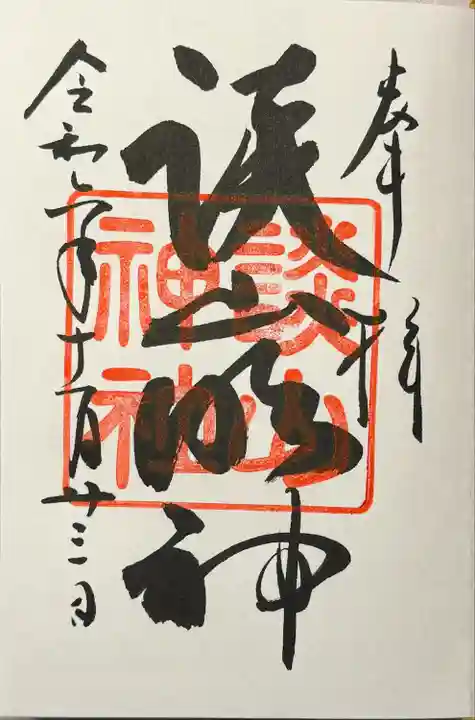 奉拝
談山明神
談山
神社
令和六年十一月廿三日